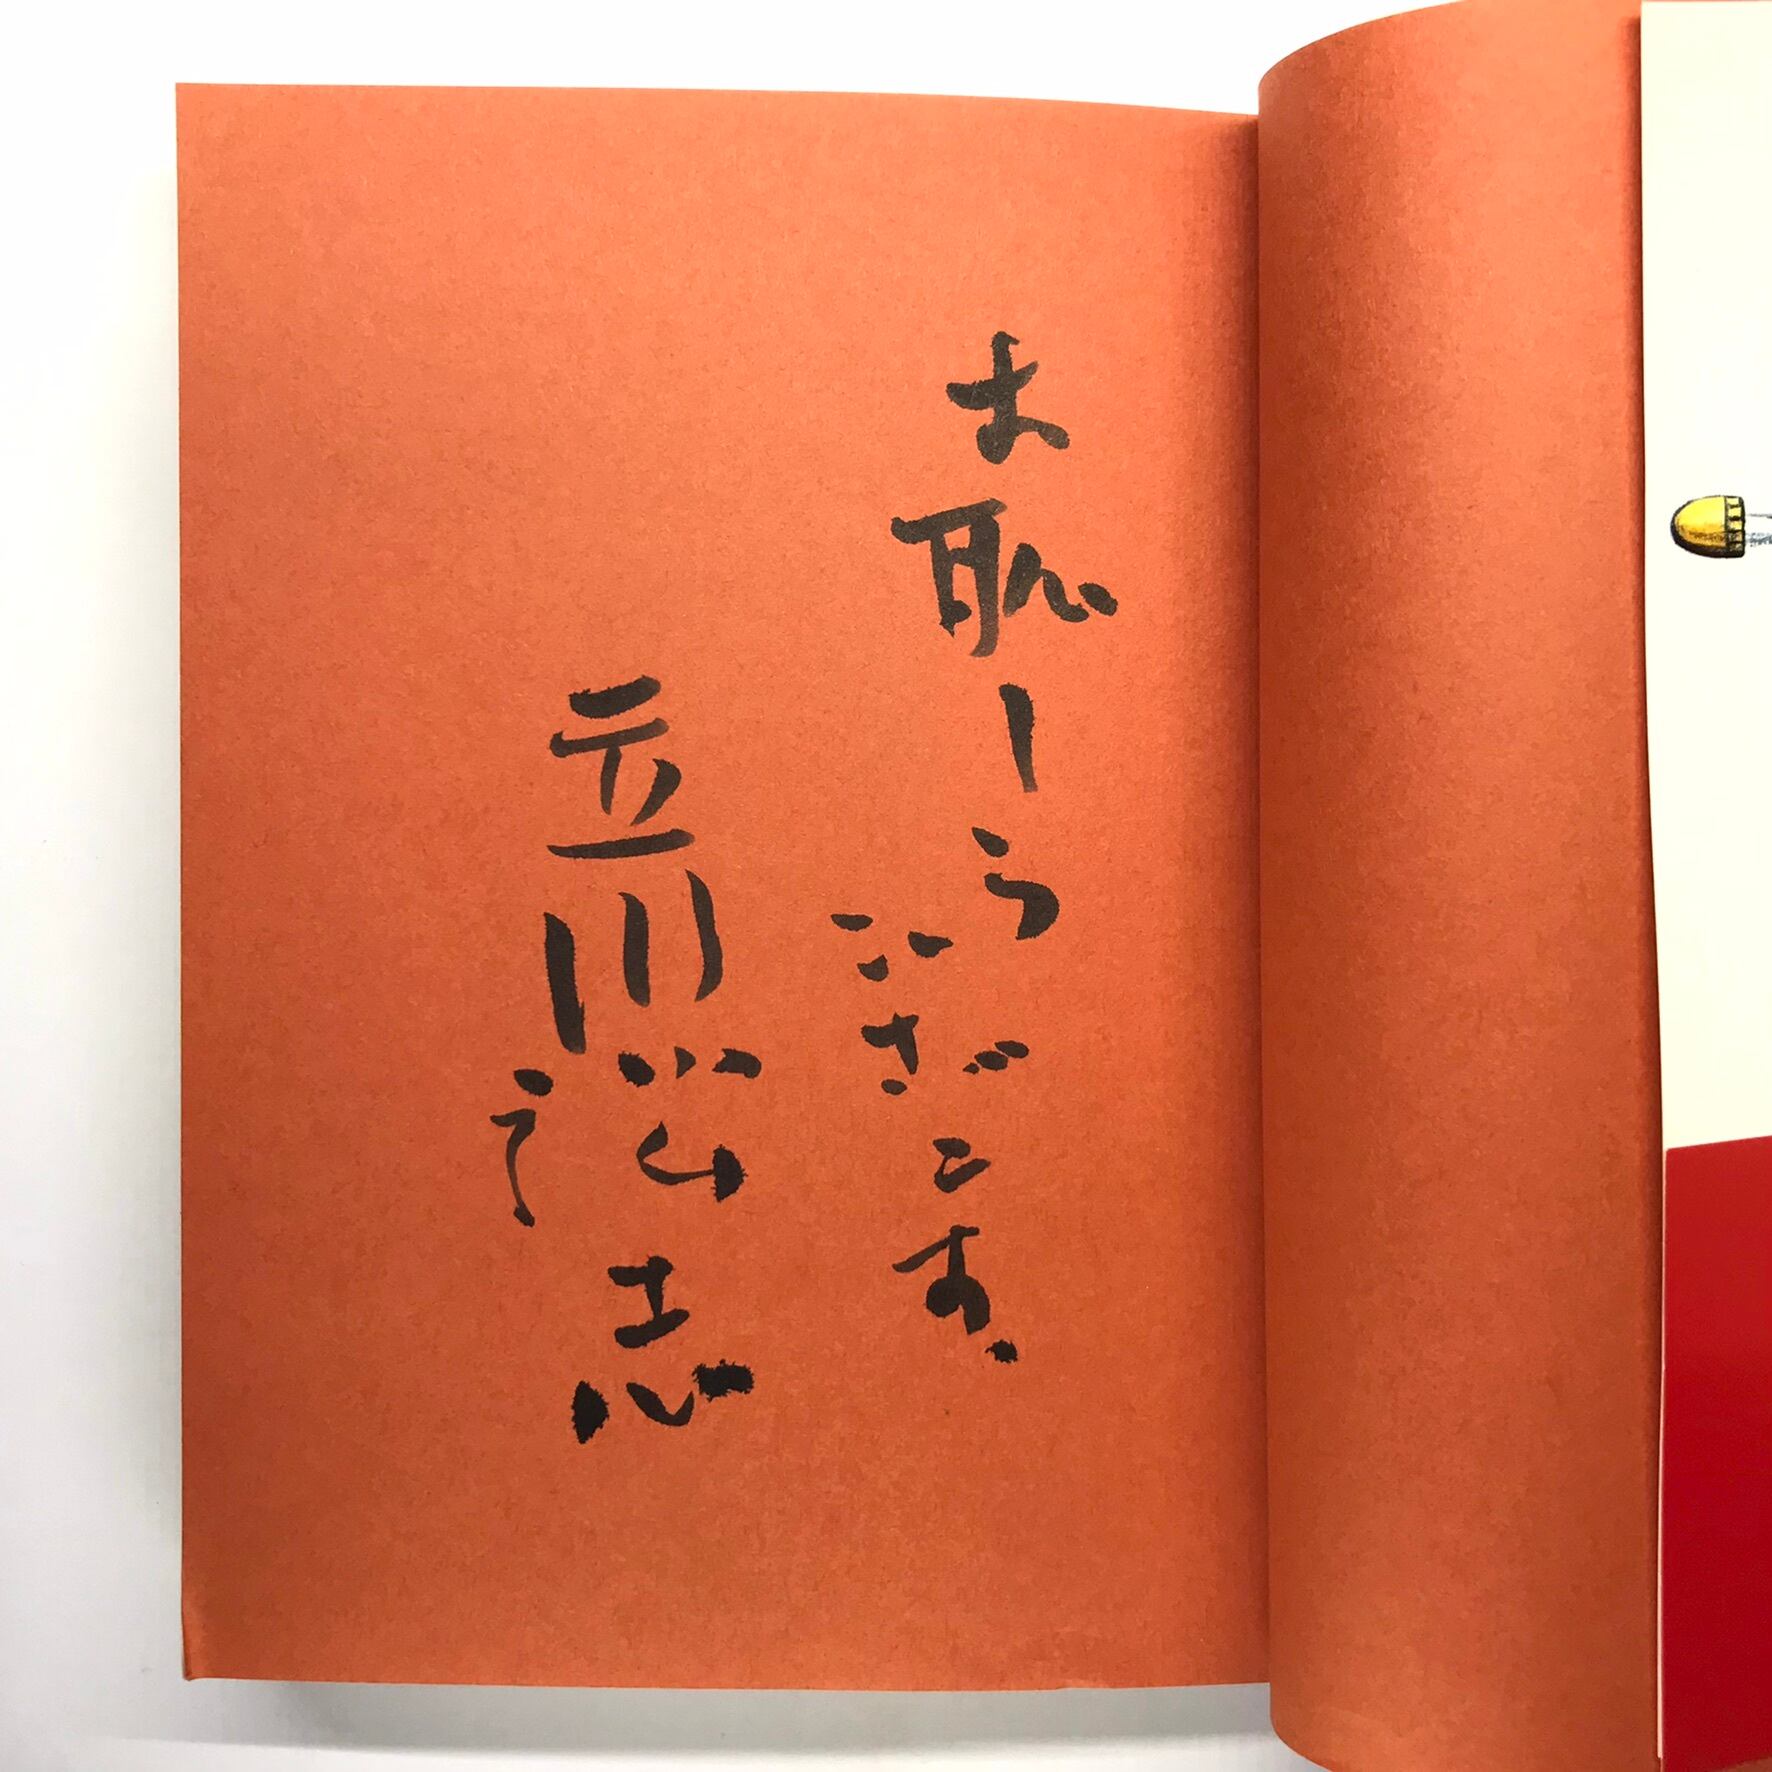 お恥しう
ござンす。
立川談志